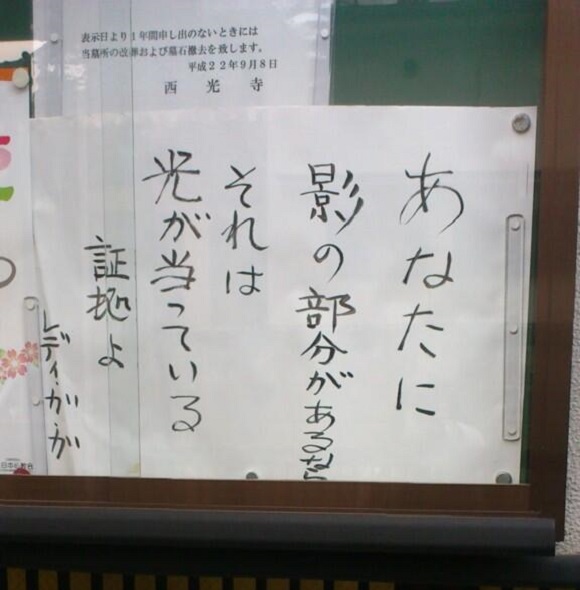 表示日より1年間申し出のないときには
当墓所の改葬および墓石撤去を致します。
平成22年9月8日
西光寺
あなたに
影の部分があるなら
それは
光が当っている
証拠よ
レディ・ガガ